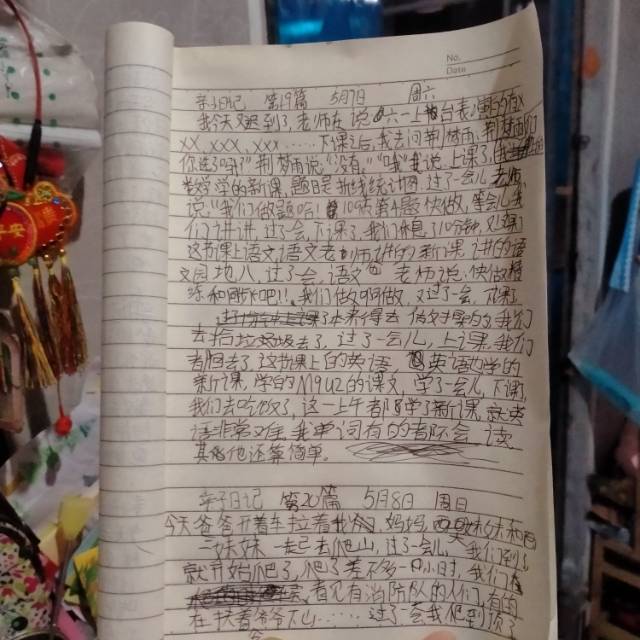 No.
Date
亲子日记 第19篇 5月7日 周六
我今天迟到了,老师在说
XX XXX XXX……下课了后,我去问荆林雨,荆林雨
你选了吗?"荆林雨说:"没有。""哦"我说,上课了
数学的新课,题目是折线统计图,过了一会儿老师
说"我们做题吧!109页第1题快做,等会儿我
们讲讲,过了一会下课了,我们休息了10分钟,又
这节课上语文,语文老师讲的新课,讲的语
文园地八,过了一会,语文老师说,快做
练和刷永吧!我们做啊做,又过了一会,下课了
我们
去 了,过了一会儿,上课,我们
都回去了这节课上的英语,英语也学的
新课,学的M9U2的课文,学了一会儿下课,
我们去吃饭了,这一上午都学了新课,就英
语非常难,我单词有的都不会读
其他还算简单。
亲子日记 第20篇 5月8日 周日
今天爸爸开着车拉着我 妈妈 妹妹和
一妹妹一起去爬山,过了一会儿,我们到了
就开始爬了,爬了差不多一小时,我们
看见有消防队的人们,有的
在扶着爷爷下山……过了一会我爬到顶了